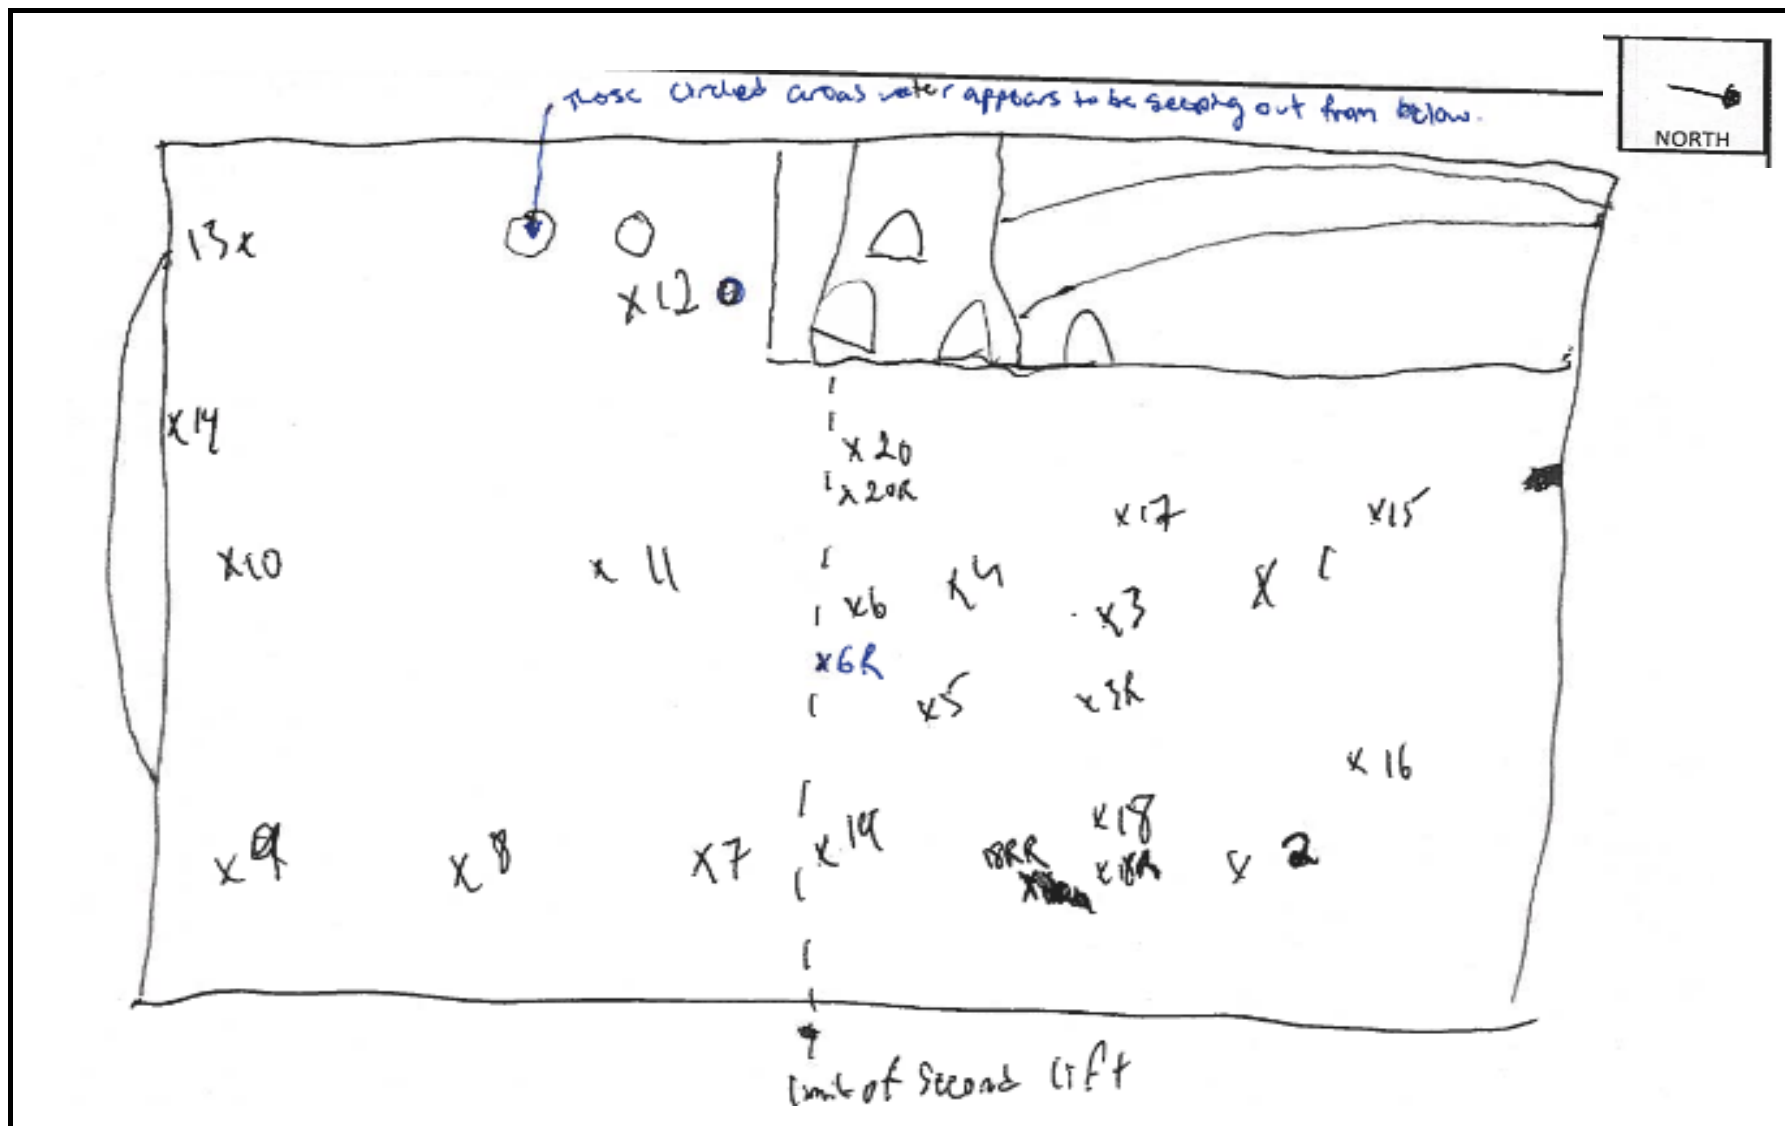 Those circled areas water appears to be seeping out from below.
NORTH
13x
x12
x14
x20
x20R
x17
x15
x10
x 11
x6
x4
x3
x 1
x6R
x5
x3R
x 16
x9
x8
x7
x 19
18RR
x18
x18R
x 2
limit of Second lift